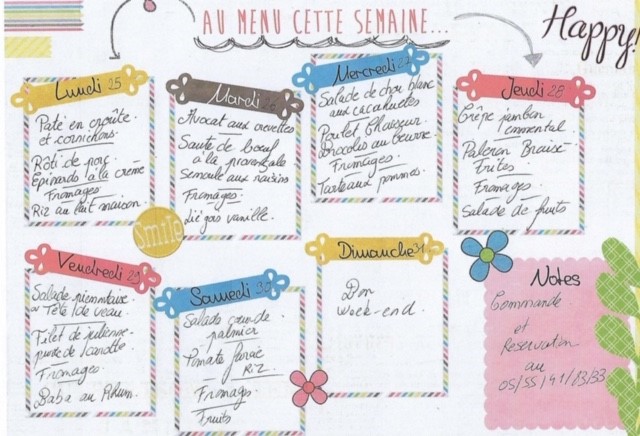 AU MENU CETTE SEMAINE...
Happy!
Lundi 25
Paté en croûte.
et cornichons.
Rôti de porc.
Epinards à la crème
Fromages
Riz au lait maison.
Mardi 26
Avocat aux crevettes
Saute de bœuf
à la provençale
Semoule aux raisins
Fromages.
Liégois vanille.
Mercredi 27
Salade de chou blanc
aux cacahuetes
Poulet Chasseur.
Brocolis au beurre.
Fromages.
Tarte aux pommes.
Jeudi 28
Crêpe jambon
emmental.
Paleron Braisé.
Frites.
Fromages.
Salade de fruits
Smile
Vendredi 29
Salade piemontaise.
Tête de veau.
Filet de julienne.
purée de carotte.
Fromages.
Baba au Rhum.
Samedi 30
Salade cœur de
palmier
Tomate farcie
Riz
Fromages
Fruits
Dimanche 31
Bon
Week-end.
Notes
Commande
et
Reservation
au
05/55/41/83/33